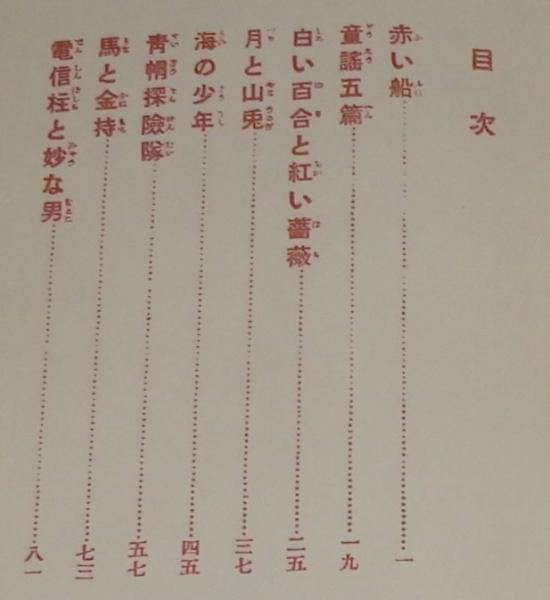 目次
赤い船……一
童謠五篇……一九
白い百合と紅い薔薇……二五
月と山兎……三七
海の少年……四五
靑帽探險隊……五七
馬と金持……七三
電信柱と妙な男……八一